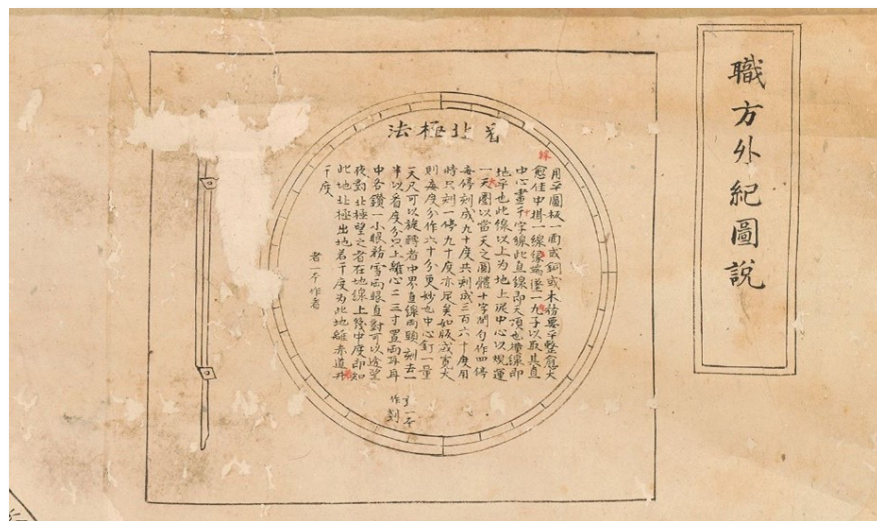 職方外紀圖說
看北極法
用平圓板一面或銅或木俱要平整愈大
愈佳中掛一線線端墜一丸子以取其直
中心畫十字線此直線即天頂也橫線即
地平也此線以上為地上從中心以規運
一天圈以當天之圓體十字間勻作四停
每停刻成九十度共刻成三百六十度用
時只刻一停九十度亦足矣如版或寬大
則每度分作六十分更妙也中心釘一量
天尺可以旋轉者中界直線兩頭刻去一
半以看度分尺上離心二三寸置兩耳耳
中各鑽一小眼務令兩眼直對可以透望
夜對北極望之者在地線上幾十度即知
此地北極出地若干度為此地離赤道若
干度
者一本作若